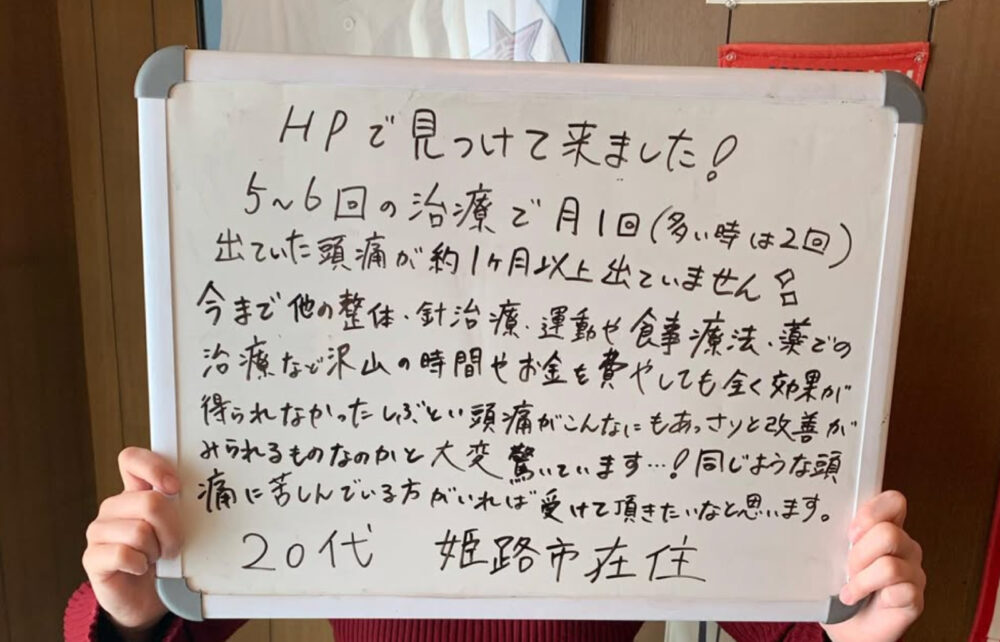 HPで見つけて来ました!
5～6回の治療で月1回(多い時は2回)
出ていた頭痛が約1ヶ月以上出ていません
今まで他の整体、針治療、運動や食事療法、薬での
治療など沢山の時間やお金を費やしても全く効果が
得られなかったしぶとい頭痛がこんなにもあっさりと改善が
みられるものなのかと大変驚いています…!同じような頭
痛に苦しんでいる方がいれば受けて頂きたいなと思います。
20代 姫路市在住